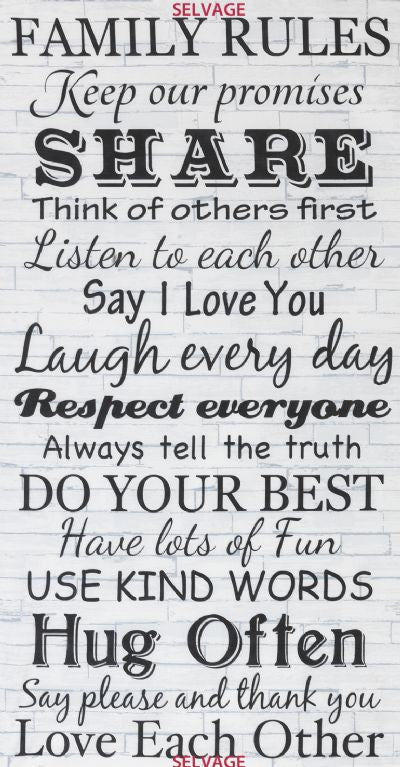 SELVAGE
FAMILY RULES
Keep our promises
SHARE
Think of others first
Listen to each other
Say I Love You
Laugh every day
Respect everyone
Always tell the truth
DO YOUR BEST
Have lots of Fun
USE KIND WORDS
Hug Often
Say please and thank you
Love Each Other
SELVAGE